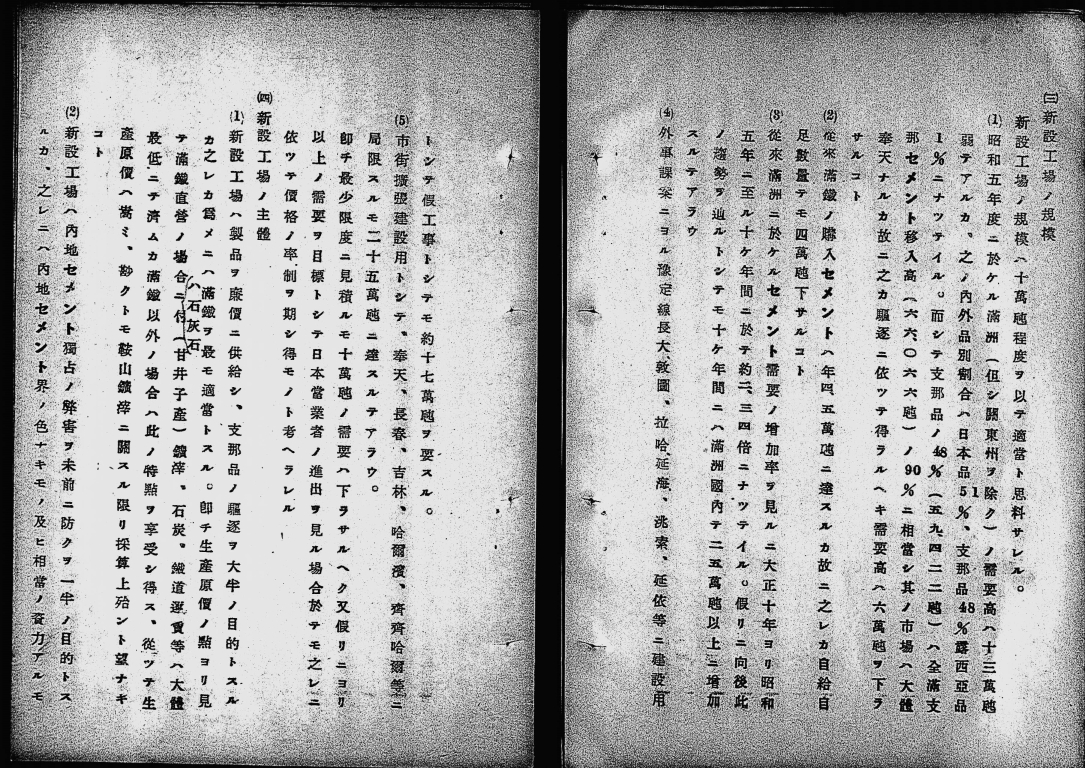 ㈢新設工場ノ規模
新設工場ノ規模ハ十萬瓲程度ヲ以テ適當ト思料サレル。
⑴昭和五年度ニ於ケル滿洲（但シ關東州ヲ除ク）ノ需要高ハ十三萬瓲
弱テアルカ、之ノ內外品別割合ハ日本品51％、支那品48％露西亞品
1％ニナツテイル。而シテ支那品ノ48％（五九、四二二瓲）ハ全滿支
那セメント移入高（六六、〇六六瓲）ノ90％ニ相當シ其ノ市場ハ大體
奉天ナルカ故ニ之カ驅逐ニ依ツテ得ラルヘキ需要高ハ六萬瓲ヲ下ラ
サルコト
⑵從來滿鐵ノ購入セメントハ年四、五萬瓲ニ達スルカ故ニ之レカ自給自
足數量テモ四萬瓲下サルコト
⑶從來滿洲ニ於ケルセメント需要ノ增加率ヲ見ルニ大正十年ヨリ昭和
五年ニ至ル十ケ年間ニ於テ約二、三四倍ニナツテイル。假リニ向後此
ノ趨勢ヲ辿ルトシテモ十ケ年間ニハ滿洲國內テ二五萬瓲以上ニ增加
スルテアラウ
⑷外事課案ニヨル豫定線長大、敦圖、拉哈延海、洮索、延依等ニ建設用
トシテ假工事トシテモ約十七萬瓲ヲ要スル。
⑸市街擴張建設用トシテ、奉天、長春、吉林、哈爾濱、齊齊哈爾等ニ
局限スルモ二十五萬瓲ニ達スルテアラウ。
卽チ最少限度ニ見積ルモ十萬瓲ノ需要ハ下ラサルヘク又假リニヨリ
以上ノ需要ヲ目標トシテ日本當業者ノ進出ヲ見ル場合於テモ之レニ
依ツテ價格ノ率制ヲ期シ得モノト考ヘラレル
㈣新設工場ノ主體
⑴新設工場ハ製品ヲ廉價ニ供給シ、支那品ノ驅逐ヲ大半ノ目的トスル
カ之レカ爲メニハ滿鐵ヲ最モ適當トスル。卽チ生產原價ノ點ヨリ見
テ滿鐵直營ノ場合ニ付ハ石灰石（甘井子產）鑛滓、石炭、鐵道運賃等ハ大體
最低ニテ濟ムカ滿鐵以外ノ場合ハ此ノ特點ヲ享受シ得ス、從ツテ生
產原價ハ嵩ミ、尠クトモ鞍山鑛滓ニ關スル限リ採算上殆ント望ナキ
コト
⑵新設工場ハ內地セメント獨占ノ弊害ヲ未前ニ防クヲ一半ノ目的トス
ルカ、之レニハ內地セメント界ノ色ナキモノ及ヒ相當ノ資力アルモ